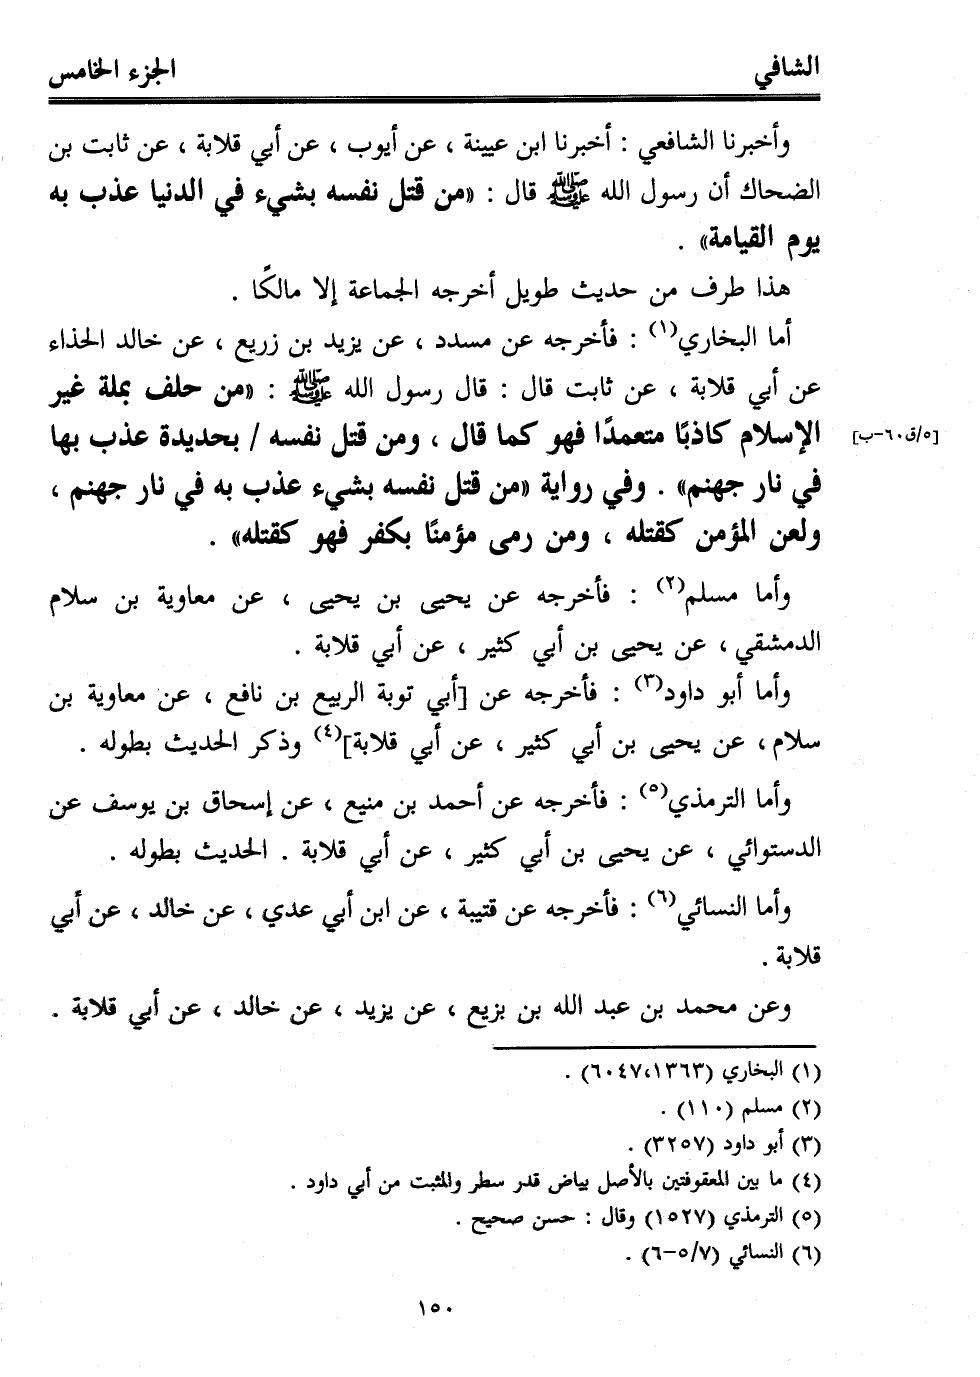 الشافي
الجزء الخامس
وأخبرنا الشافعي : أخبرنا ابن عيينة ، عن أيوب ، عن أبي قلابة ، عن ثابت بن
الضحاك أن رسول الله ﷺ قال : «من قتل نفسه بشيء في الدنيا عذب به
يوم القيامة» .
هذا طرف من حديث طويل أخرجه الجماعة إلا مالكًا .
أما البخاري(١) : فأخرجه عن مسدد ، عن يزيد بن زريع ، عن خالد الحذاء
عن أبي قلابة ، عن ثابت قال : قال رسول الله ﷺ : «من حلف بملة غير
الإسلام كاذبًا متعمدًا فهو كما قال ، ومن قتل نفسه / بحديدة عذب بها
[٥/ق٦٠-ب]
في نار جهنم» . وفي رواية «من قتل نفسه بشيء عذب به في نار جهنم ،
ولعن المؤمن كقتله ، ومن رمى مؤمنًا بكفر فهو كقتله» .
وأما مسلم(٢) : فأخرجه عن يحيى بن يحيى ، عن معاوية بن سلام
الدمشقي ، عن يحيى بن أبي كثير ، عن أبي قلابة .
وأما أبو داود(٣) : فأخرجه عن [أبي توبة الربيع بن نافع ، عن معاوية بن
سلام، عن يحيى بن أبي كثير ، عن أبي قلابة](٤) وذكر الحديث بطوله .
وأما الترمذي(٥) : فأخرجه عن أحمد بن منيع ، عن إسحاق بن يوسف عن
الدستوائي ، عن يحيى بن أبي كثير ، عن أبي قلابة . الحديث بطوله .
وأما النسائي(٦) : فأخرجه عن قتيبة ، عن ابن أبي عدي ، عن خالد ، عن أبي
قلابة .
وعن محمد بن عبد الله بن بزيع ، عن يزيد ، عن خالد ، عن أبي قلابة .
(١) البخاري (١٣٦٣،٦٠٤٧) .
(٢) مسلم (١١٠) .
(٣) أبو داود (٣٢٥٧) .
(٤) ما بين المعقوفتين بالأصل بياض قدر سطر والمثبت من أبي داود .
(٥) الترمذي (١٥٢٧) وقال : حسن صحيح .
(٦) النسائي (٧/٥-٦) .
١٥٠